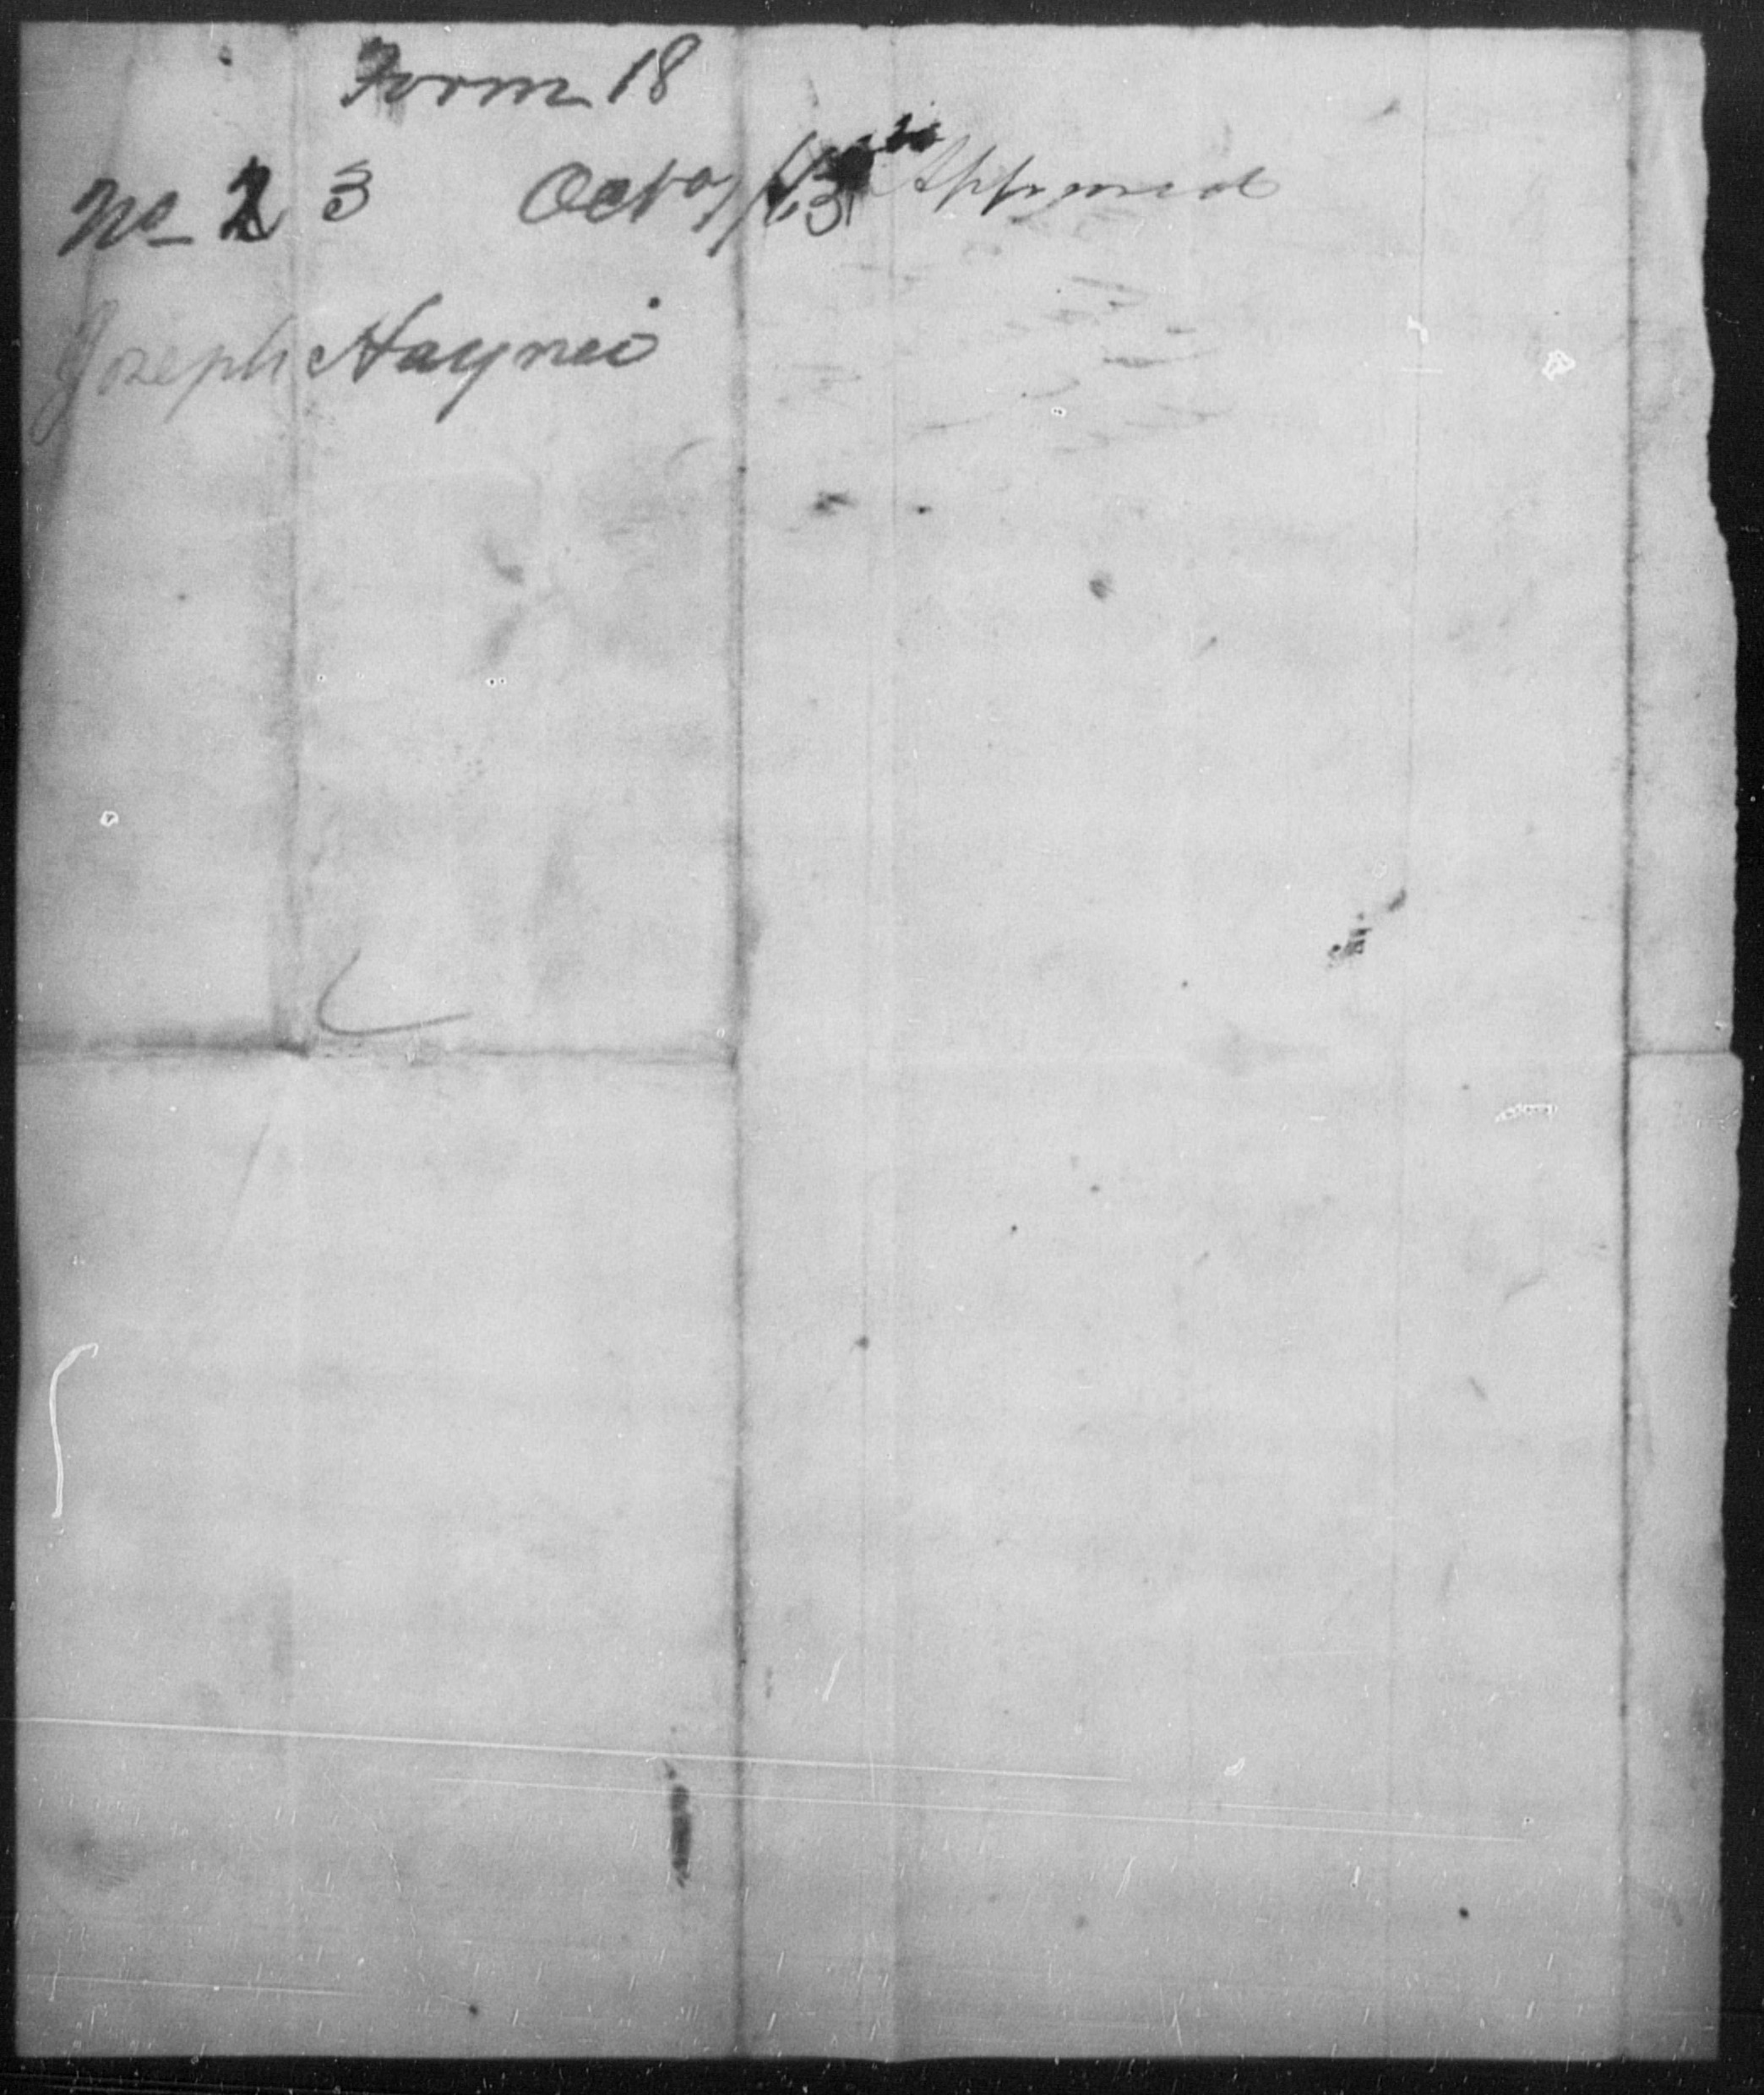 Form 18
No 23 Octo Approved
Joseph Haynes